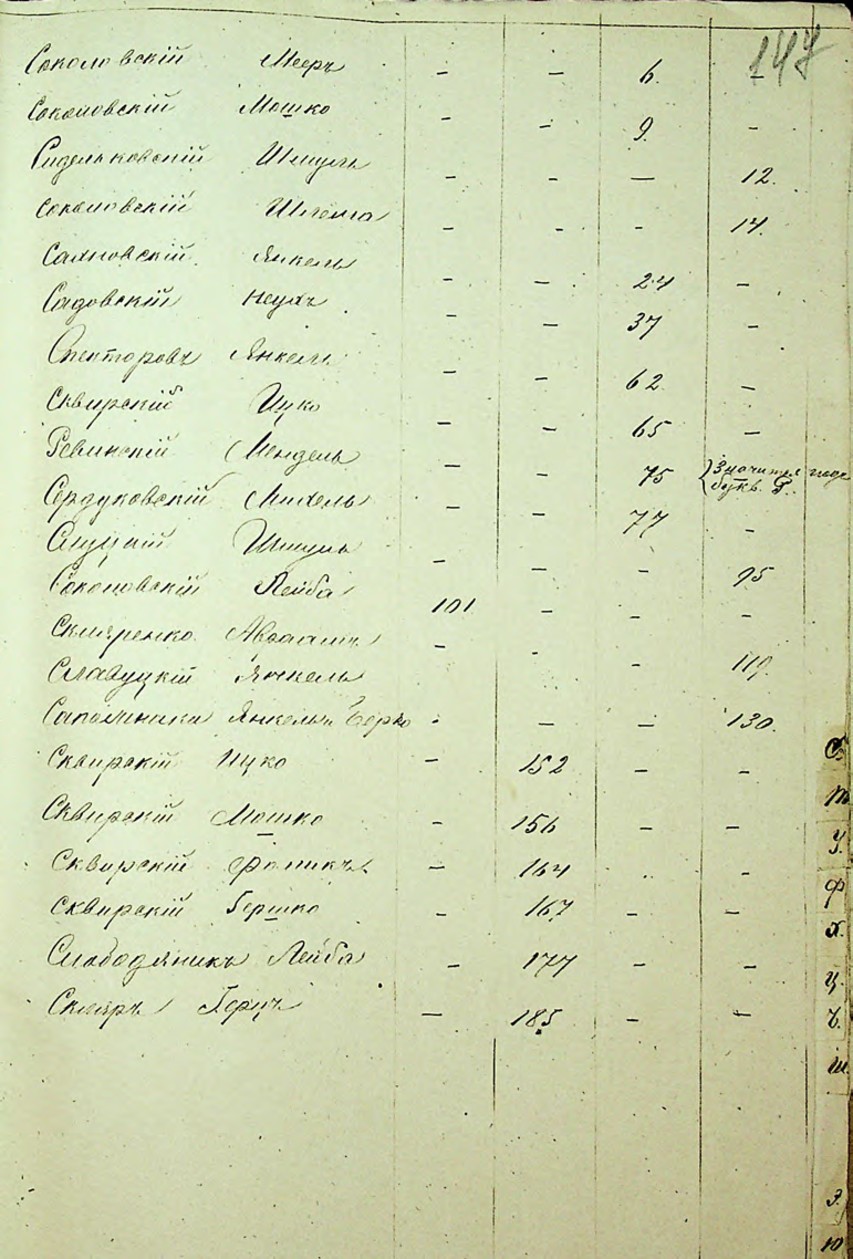 147
Соколовскій Мееръ - - 6. -
Соколовскій Мошко - - 9. -
Сидельковскій Шмуль - - - 12.
Соколовскій Шлема - - - 14.
Саяновскій Янкель - - 24 -
Садовскій Неухъ - - 37 -
Спекторовъ Янкель - - 62 -
Сквирскій Ицко - - 65 -
Ревинскій Мендель - - 75 Значится подъ
букв. Р.
Сердуковскій Михель - - 77 -
Слуцкій Шмуль - - - 95
Соколовскій Лейба 101 - - -
Скляренко Авраамъ - - - 119.
Славуцкій Янкель
Сапожника Янкель и Берко - - - 130.
Сквирскій Ицко - 152 - -
Сквирскій Мошко - 156 - -
Сквирскій Фроликъ - 164 - -
Сквирскій Гершко - 167 - -
Слободяникъ Лейба - 177 - -
Скляръ Герцъ - 185 - -
С.
Т.
У.
Ф
Х.
Ц.
Ч.
Ш.
Э.
Ю